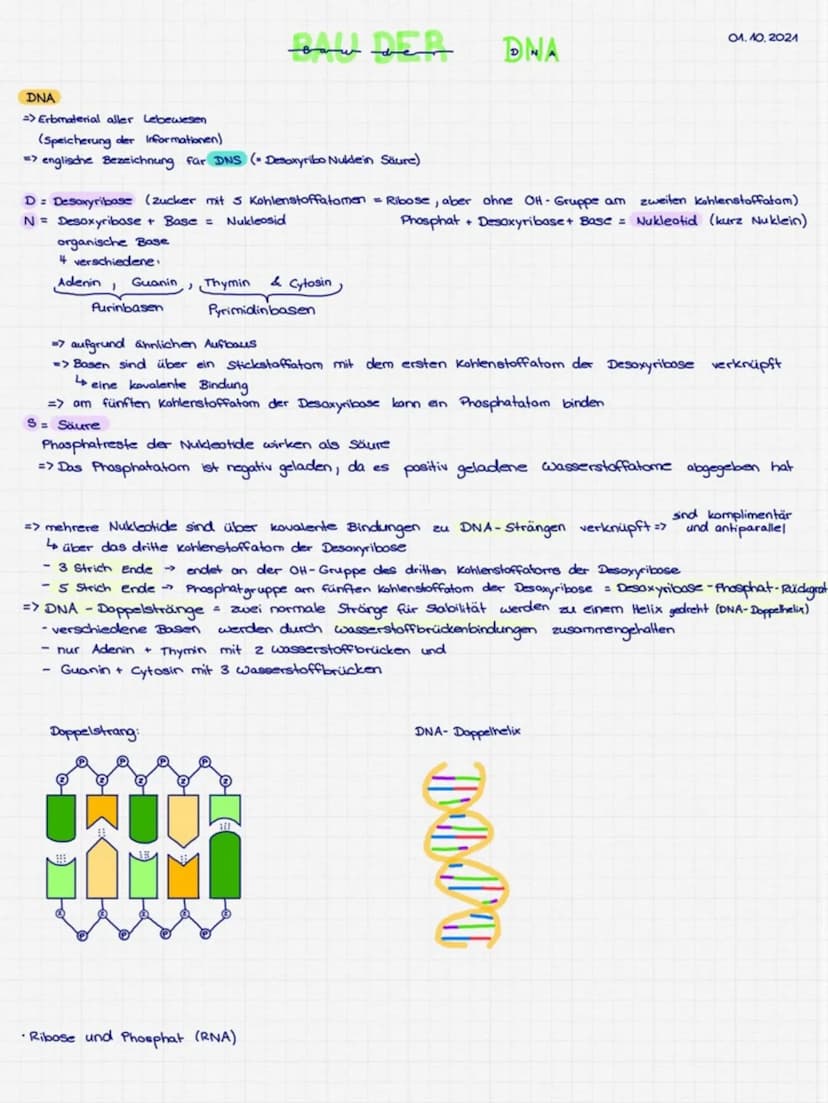 BAU DER DNA
Bau der DNA
01.10.2021
DNA
=> Erbmaterial aller Lebewesen
(Speicherung der Informationen)
=> englische Bezeichnung für DNS (= Desoxyribo Nuklein Säure)
D = Desoxyribase (zucker mit 5 Kohlenstoffatomen = Ribose, aber ohne OH-Gruppe am zweiten Kohlenstoffatom)
N = Desoxyribase + Base = Nukleosid Phosphat + Desoxyribase + Base = Nukleotid (kurz Nuklein)
organische Base
4 verschiedene:
Adenin, Guanin, Thymin & Cytosin
Purinbasen Pyrimidinbasen
=> aufgrund ähnlichen Aufbaus
=> Basen sind über ein Stickstoffatom mit dem ersten Kohlenstoffatom der Desoxyribose verknüpft
↳ eine kovalente Bindung
=> am fünften Kohlenstoffatom der Desoxyribose kann ein Phosphatatom binden
S = Säure
Phosphatreste der Nukleotide wirken als Säure
=> Das Phosphatatom ist negativ geladen, da es positiv geladene Wasserstoffatome abgegeben hat
=> mehrere Nukleotide sind über kovalente Bindungen zu DNA-Strängen verknüpft => sind komplimentär und antiparallel
↳ über das dritte Kohlenstoffatom der Desoxyribose
- 3 Strich Ende → endet an der OH-Gruppe des dritten Kohlenstoffatoms der Desoxyribose
- 5 Strich Ende → Phosphatgruppe am fünften Kohlenstoffatom der Desoxyribose = Desoxyribase-Phosphat-Rückgrat
=> DNA - Doppelstränge = zwei normale Stränge für Stabilität werden zu einem Helix gedreht (DNA-Doppelhelix)
- verschiedene Basen werden durch Wasserstoffbrückenbindungen zusammengehalten
- nur Adenin + Thymin mit 2 Wasserstoffbrücken und
- Guanin + Cytosin mit 3 Wasserstoffbrücken
Doppelstrang: DNA- Doppelhelix
P P P P
Z Z Z Z Z
Z Z Z Z Z
P P P P
· Ribose und Phosphat (RNA)